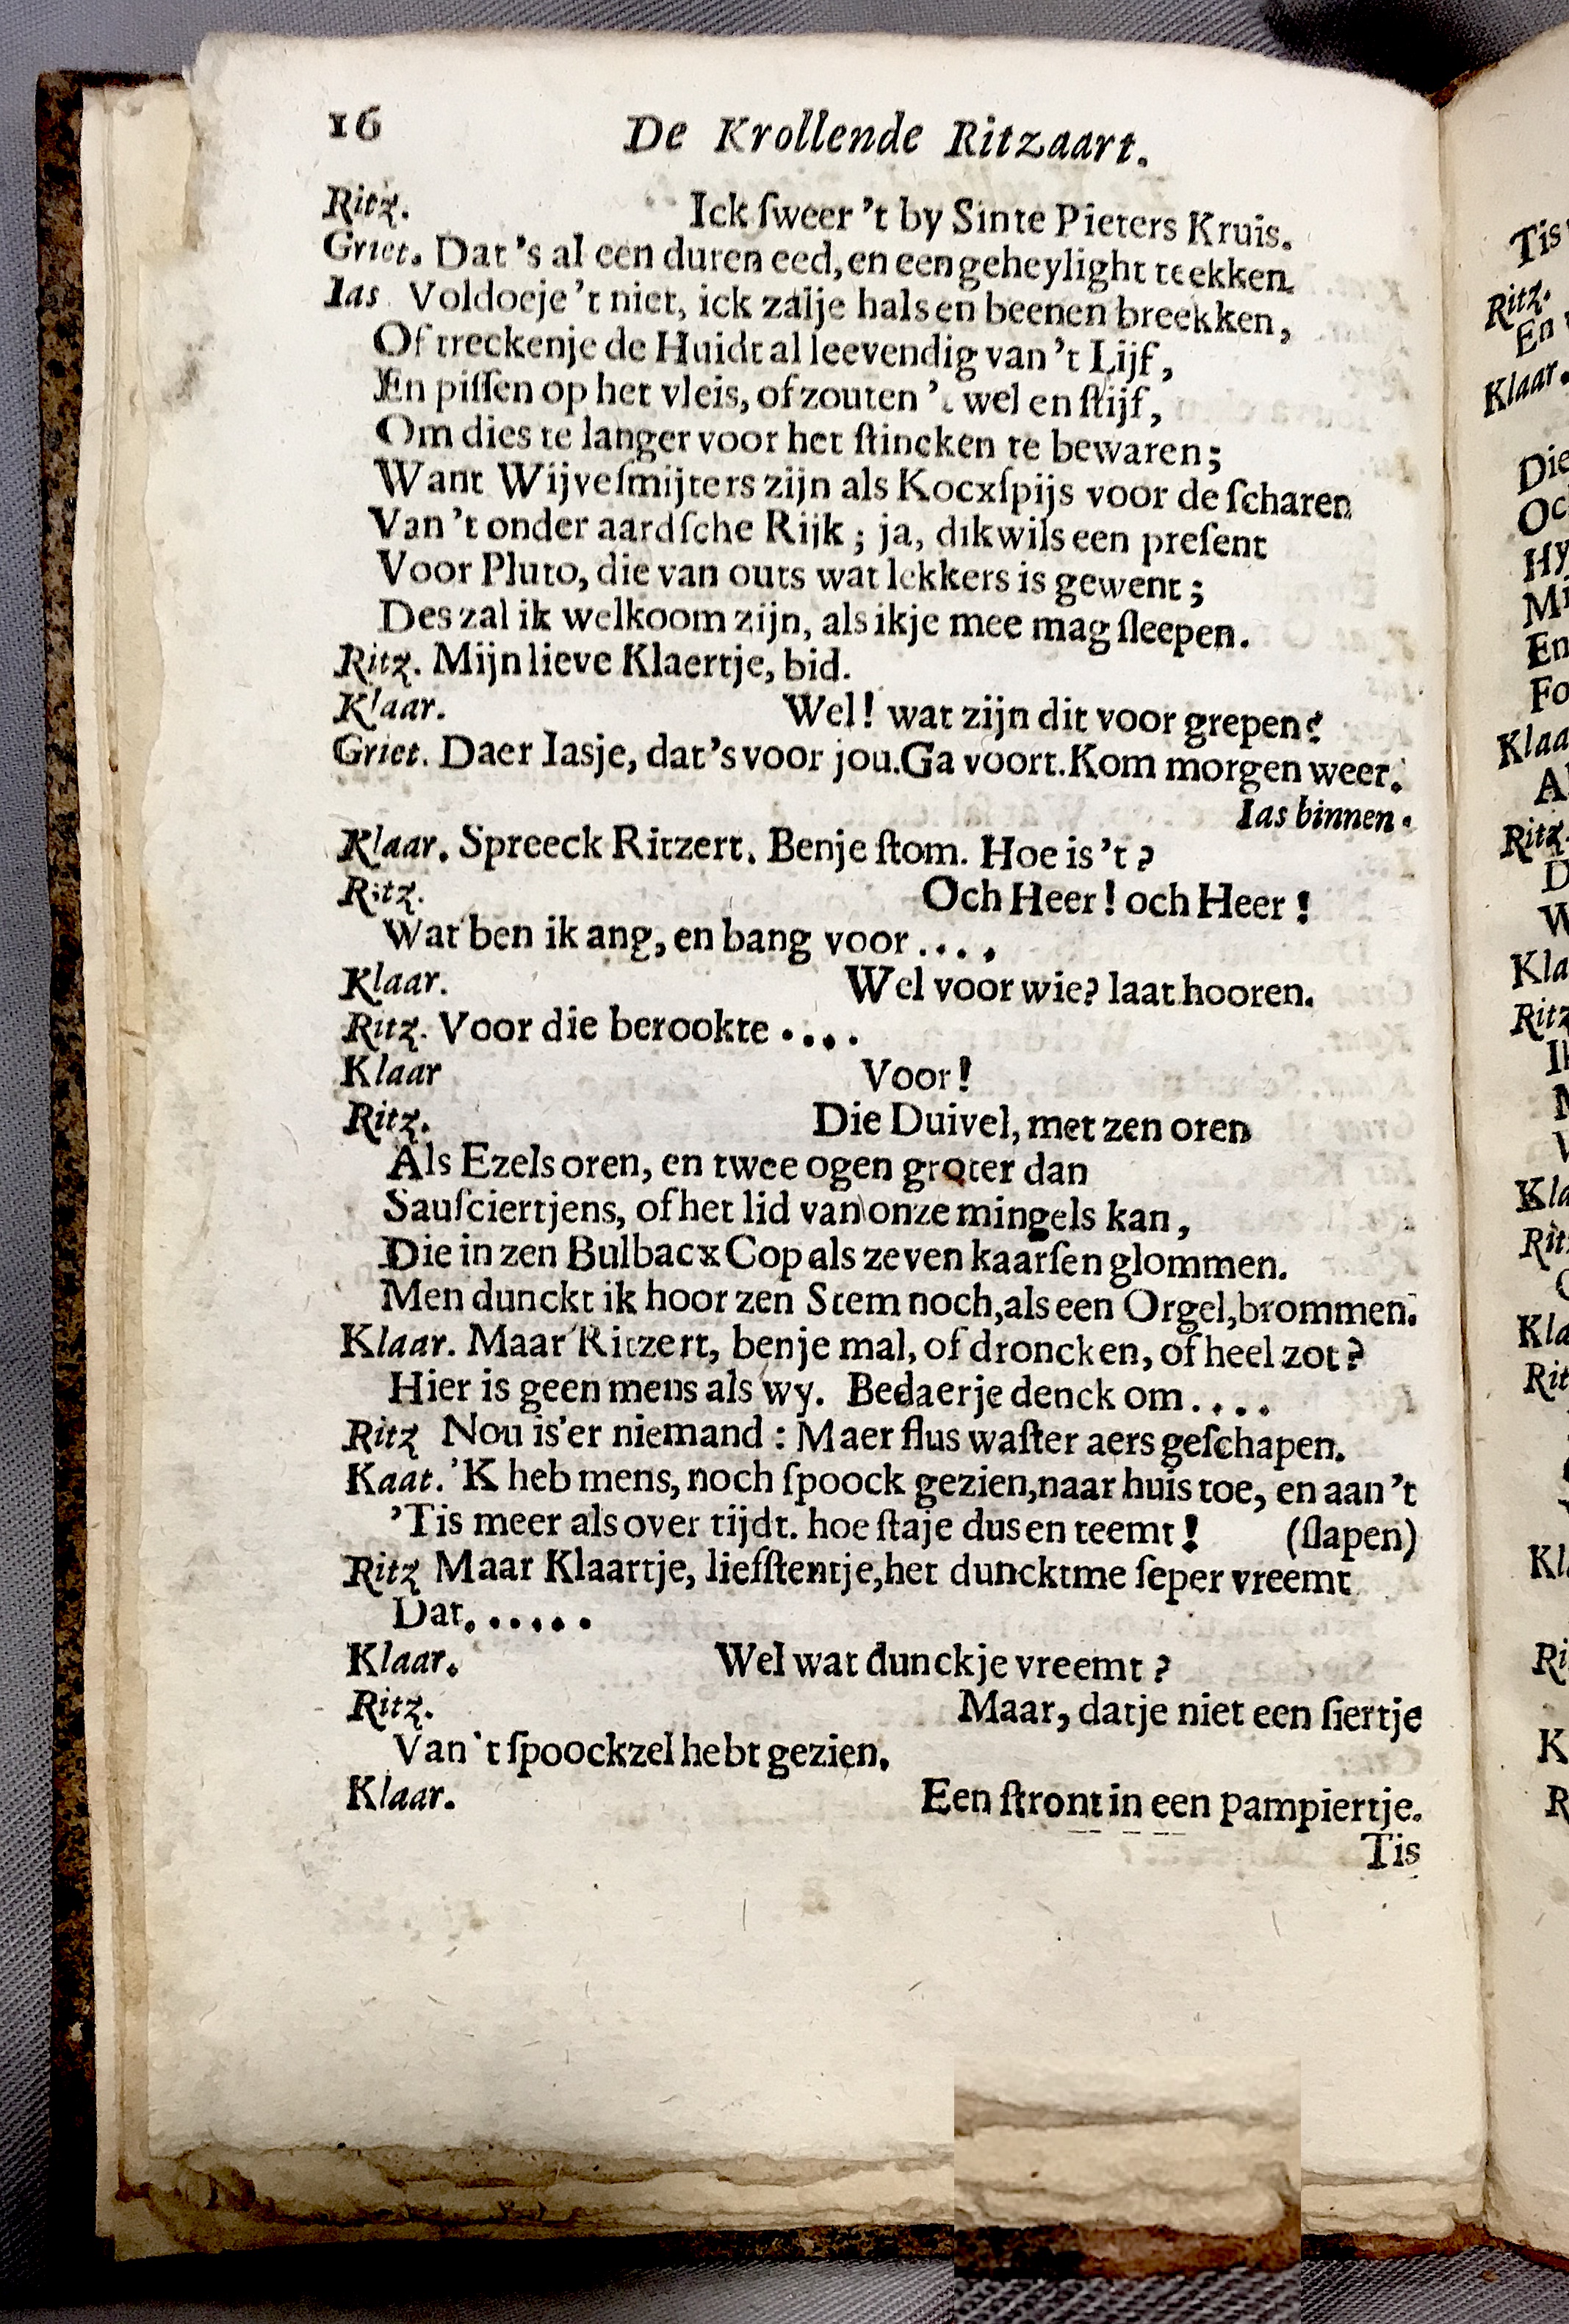 16 De Krollende Ritzaart.
Ritz. Ick ſweer 't by Sinte Pieters Kruis.
Griet. Dat 's al een duren eed, en een geheylight teekken.
Ias Voldoeje 't niet, ick zalje hals en beenen breekken,
Of treckenje de Huidt al leevendig van 't Lijf,
En piſſen op het vleis, of zouten 't wel en ſtijf,
Om dies te langer voor het ſtincken te bewaren;
Want Wijveſmijters zijn als Kocxſpijs voor de ſcharen
Van 't onder aardſche Rijk; ja, dikwils een preſent
Voor Pluto, die van outs wat lekkers is gewent;
Des zal ik welkoom zijn, als ikje mee mag ſleepen.
Ritz. Mijn lieve Klaertje, bid.
Klaar. Wel! wat zijn dit voor grepen?
Griet. Daer Iasje, dat 's voor jou. Ga voort. Kom morgen weer.
Ias binnen.
Klaar. Spreeck Ritzert. Benje ſtom. Hoe is 't?
Ritz. Och Heer! och Heer!
Wat ben ik ang, en bang voor....
Klaar. Wel voor wie? laat hooren.
Ritz. Voor die berookte....
Klaar Voor!
Ritz. Die Duivel, met zen oren
Als Ezels oren, en twee ogen groter dan
Sauſciertjens, of het lid van onze mingels kan,
Die in zen Bulbacx Cop als zeven kaarſen glommen.
Men dunckt ik hoor zen Stem noch, als een Orgel, brommen.
Klaar. Maar Ritzert, benje mal, of droncken, of heel zot?
Hier is geen mens als wy. Bedaerje denck om....
Ritz Nou is'er niemand: Maer flus waſter aers geſchapen.
Kaat. 'K heb mens, noch ſpoock gezien, naar huis toe, en aan 't
'Tis meer als over tijdt. hoe ſtaje dus en teemt! (ſlapen)
Ritz Maar Klaartje, liefſtentje, het duncktme ſeper vreemt
Dat......
Klaar. Wel wat dunckje vreemt?
Ritz. Maar, datje niet een ſiertje
Van 't ſpoockzel hebt gezien.
Klaar. Een ſtront in een pampiertje.
Tis
Tis
Ritz.
En
Klaar.
Die
Och
Hy
Mi
En
Fo
Klaa
Al
Ritz.
D
W
Kla
Ritz
Ik
M
V
Kla
Rit
Kla
Rit
Kl
Ri
K
R